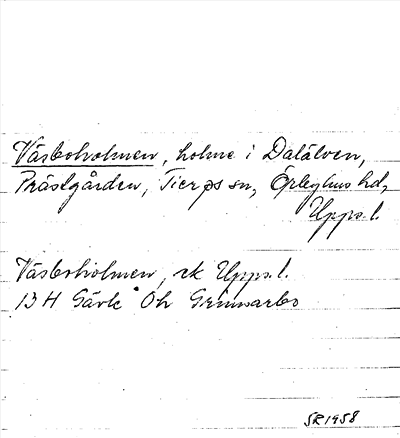 Väsboholmen, holme i Dalälven,
Prästgården, Tierps sn, Örbyhus hd,
Upps. l.
Väsboholmen, rk Upps. l.
13 H Gävle Oh Grinnarbo
SR 1958